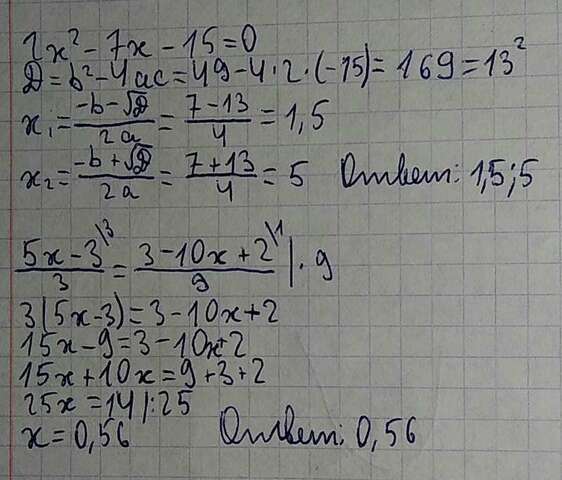 2x² - 7x - 15 = 0
D = b² - 4ac = 49 - 4·2·(-15) = 169 = 13²
x₁ = (-b - √D)/(2a) = (7 - 13)/4 = 1,5
x₂ = (-b + √D)/(2a) = (7 + 13)/4 = 5 Ответ: 1,5; 5
(5x - 3)/3 \3 = (3 - 10x + 2)/9 \1 | · 9
3(5x - 3) = 3 - 10x + 2
15x - 9 = 3 - 10x + 2
15x + 10x = 9 + 3 + 2
25x = 14 | : 25
x = 0,56 Ответ: 0,56